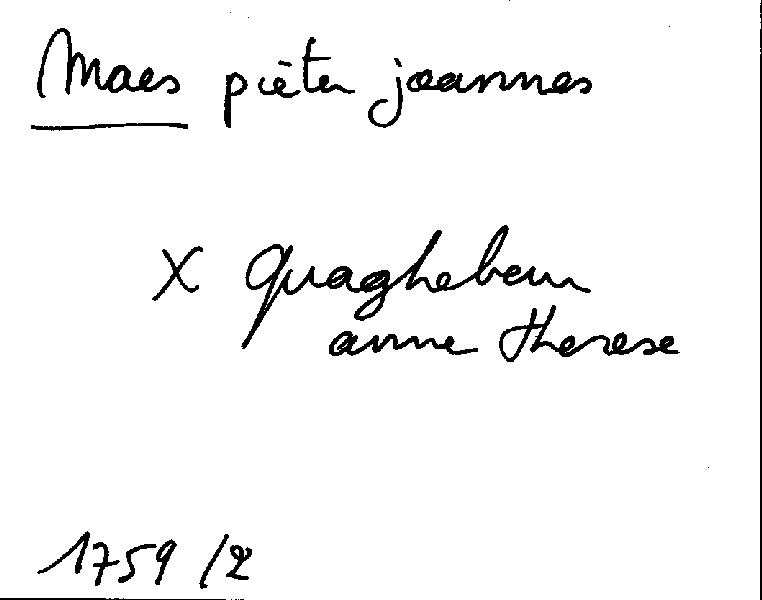 Maes pieter joannes
X Quaghebeur
anne therese
1759 /2